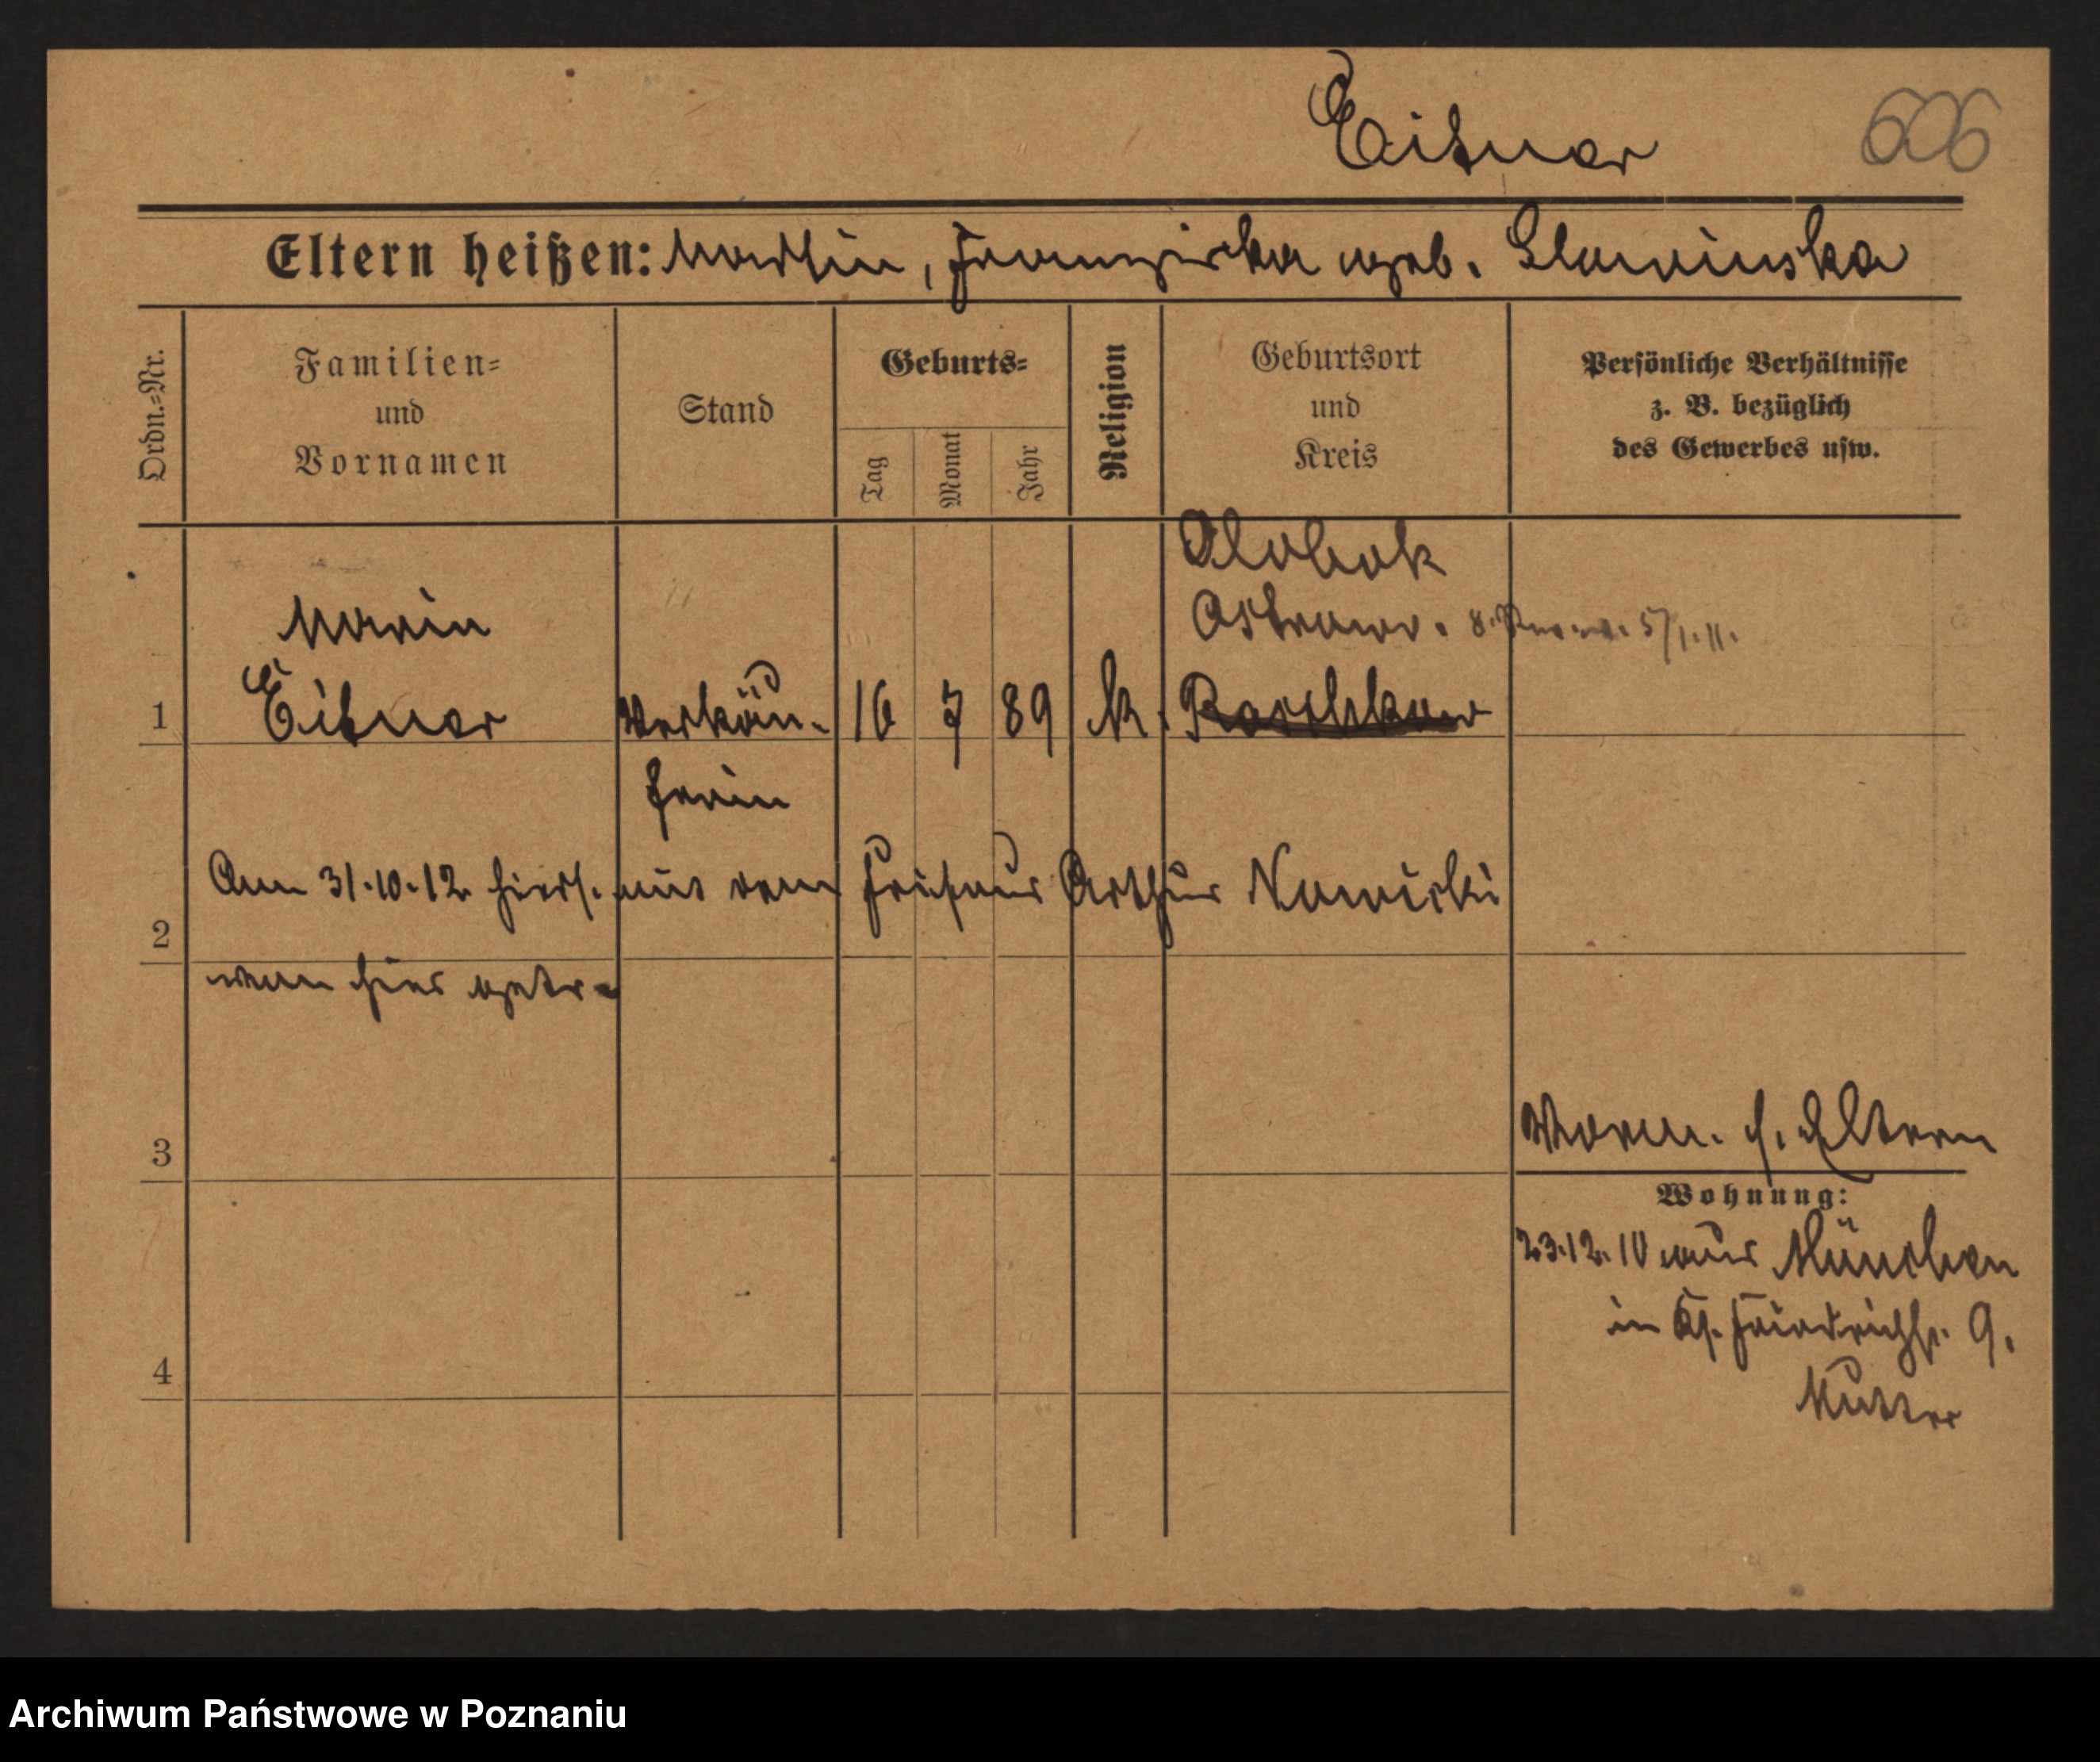 Eitner
606
Eltern heißen: Martin, Franziska geb. Slawinska
Ordn.-Nr.
Familien- und Vornamen
Stand
Geburts-
Tag
Monat
Jahr
Religion
Geburtsort und Kreis
Persönliche Verhältnisse z. B. bezüglich des Gewerbes usw.
Olobok
Ostrowo. 5/1.11.
Marie
1 Eitner Verkäu- 16 7 89 k. Raschkow
ferin
Am 31.10.12 hiers. mit dem Friseur Arthur Nawicki
2
hier getr.
3
Eltern
Wohnung:
23.12.10 aus München
in Friedrichstr. 9.
Mutter
4
Archiwum Państwowe w Poznaniu